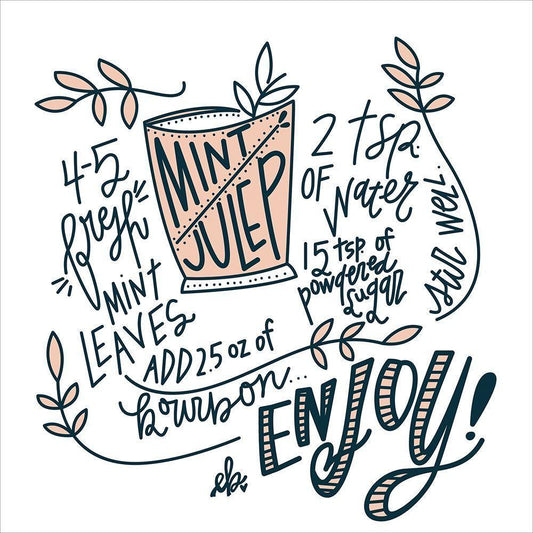 MINT
JULEP
4-5
fresh
MINT
LEAVES
2 tsp.
OF
Water
15 tsp. of
powdered
sugar
stir well.
ADD 2.5 oz of
bourbon...
ENJOY!
eb.